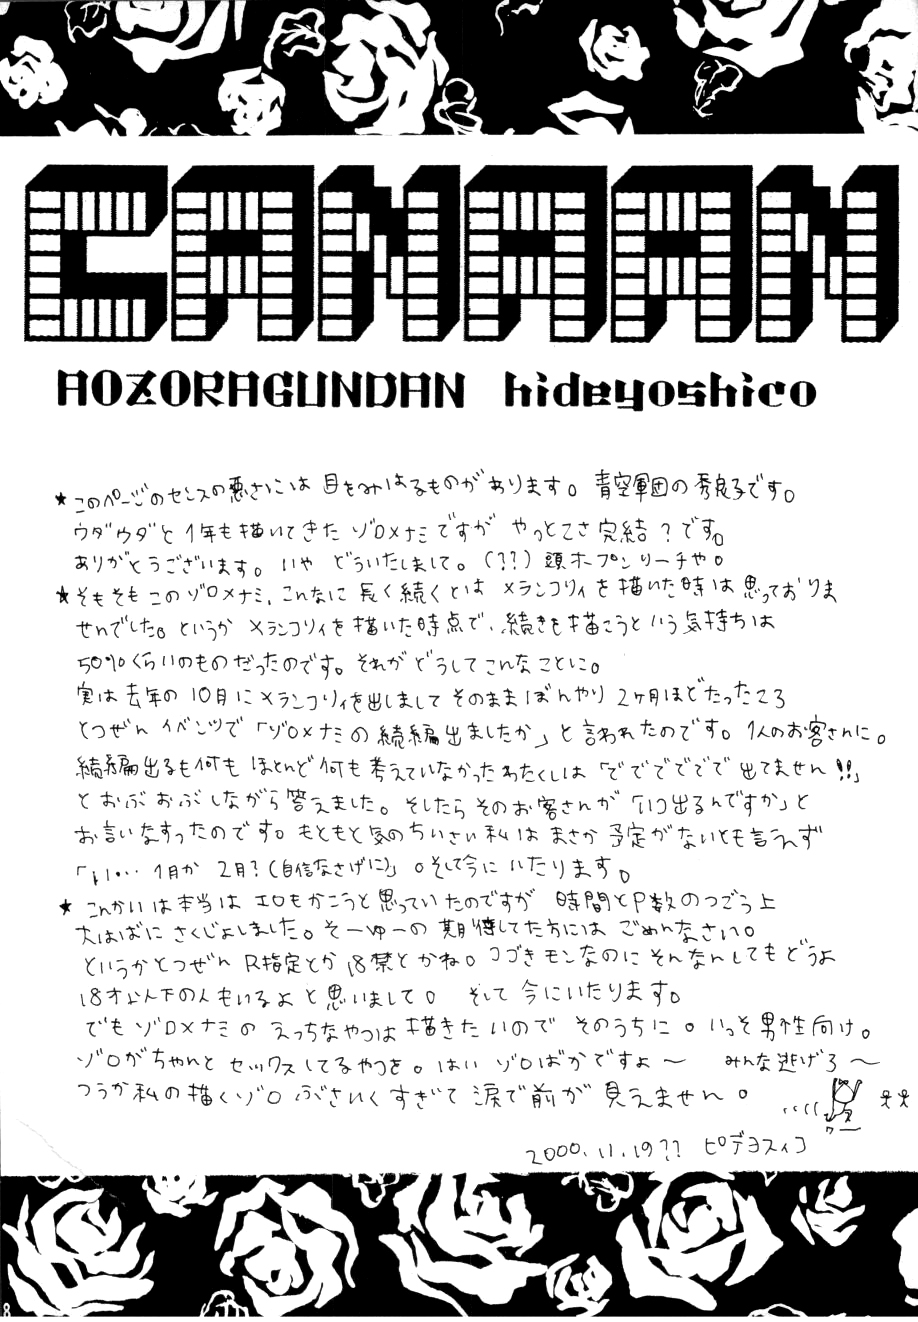 CANAAN
AOZORAGUNDAN hideyoshico
★このページのセンスの悪さには目をみはるものがあります。青空軍団の秀良子です。
ウダウダと1年も描いてきたゾロ×ナミですがやっとこさ完結?です。
ありがとうございます。いやどういたしまして。(??)頭ホープンリーチや。
★そもそもこのゾロ×ナミ、こんなに長く続くとはメランコリィを描いた時は思っておりま
せんでした。というかメランコリィを描いた時点で、続きを描こうという気持ちは
50%くらいのものだったのです。それがどうしてこんなことに。
実は去年の10月にメランコリィを出しましてそのままぼんやり2ヶ月ほどたったころ
とつぜんイベンツで「ゾロ×ナミの続編出ましたか」と言われたのです。1人のお客さんに。
続編出るも何もほとんど何も考えていなかったわたくしは「でででででで出てません!!」
とおぶおぶしながら答えました。そしたらそのお客さんが「いつ出るんですか」と
お言いなすったのです。もともと気のちいさい私はまさか予定がないとも言えず
「い…1月か2月?(自信なさげに)」。そして今にいたります。
★こんかいは本当はエロもかこうと思っていたのですが時間とP数のつごう上
大はばにさくじょしました。そーゆーの期待してた方にはごめんなさい。
というかとつぜんR指定とか18禁とかね。コゴきモンなのにそんなんしてもどうよ
18才以下の人もいるよと思いまして。そして今にいたります。
でもゾロ×ナミのえっちなやつは描きたいのでそのうちに。いっそ男性向け。
ゾロがちゃんとセックスしてるやつを。はいゾロばかですよ〜 みんな逃げろ〜
つうか私の描くゾロぶさいくすぎて涙で前が見えません。
2000.11.19?? ピデヨスィコ
8